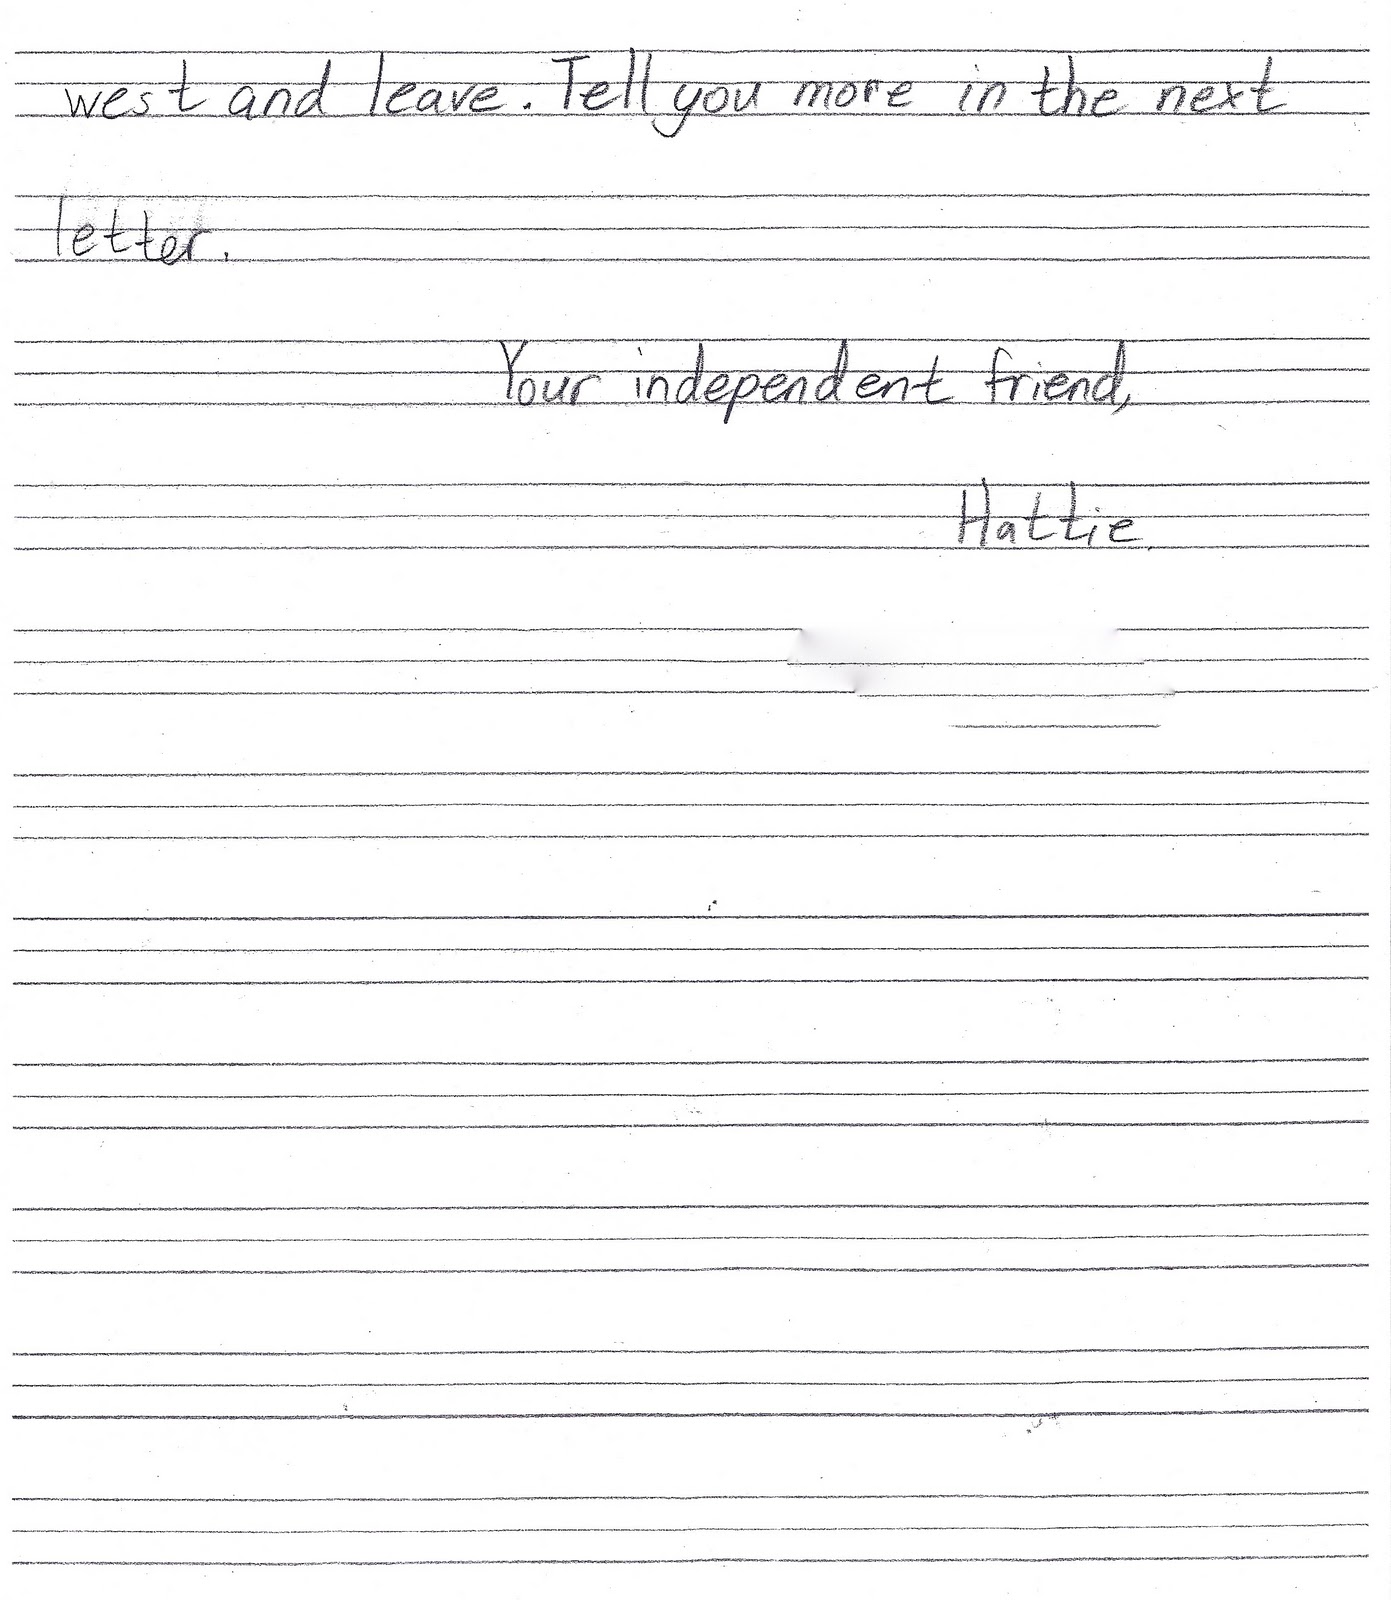 west and leave. Tell you more in the next
letter.
Your independent friend,
Hattie